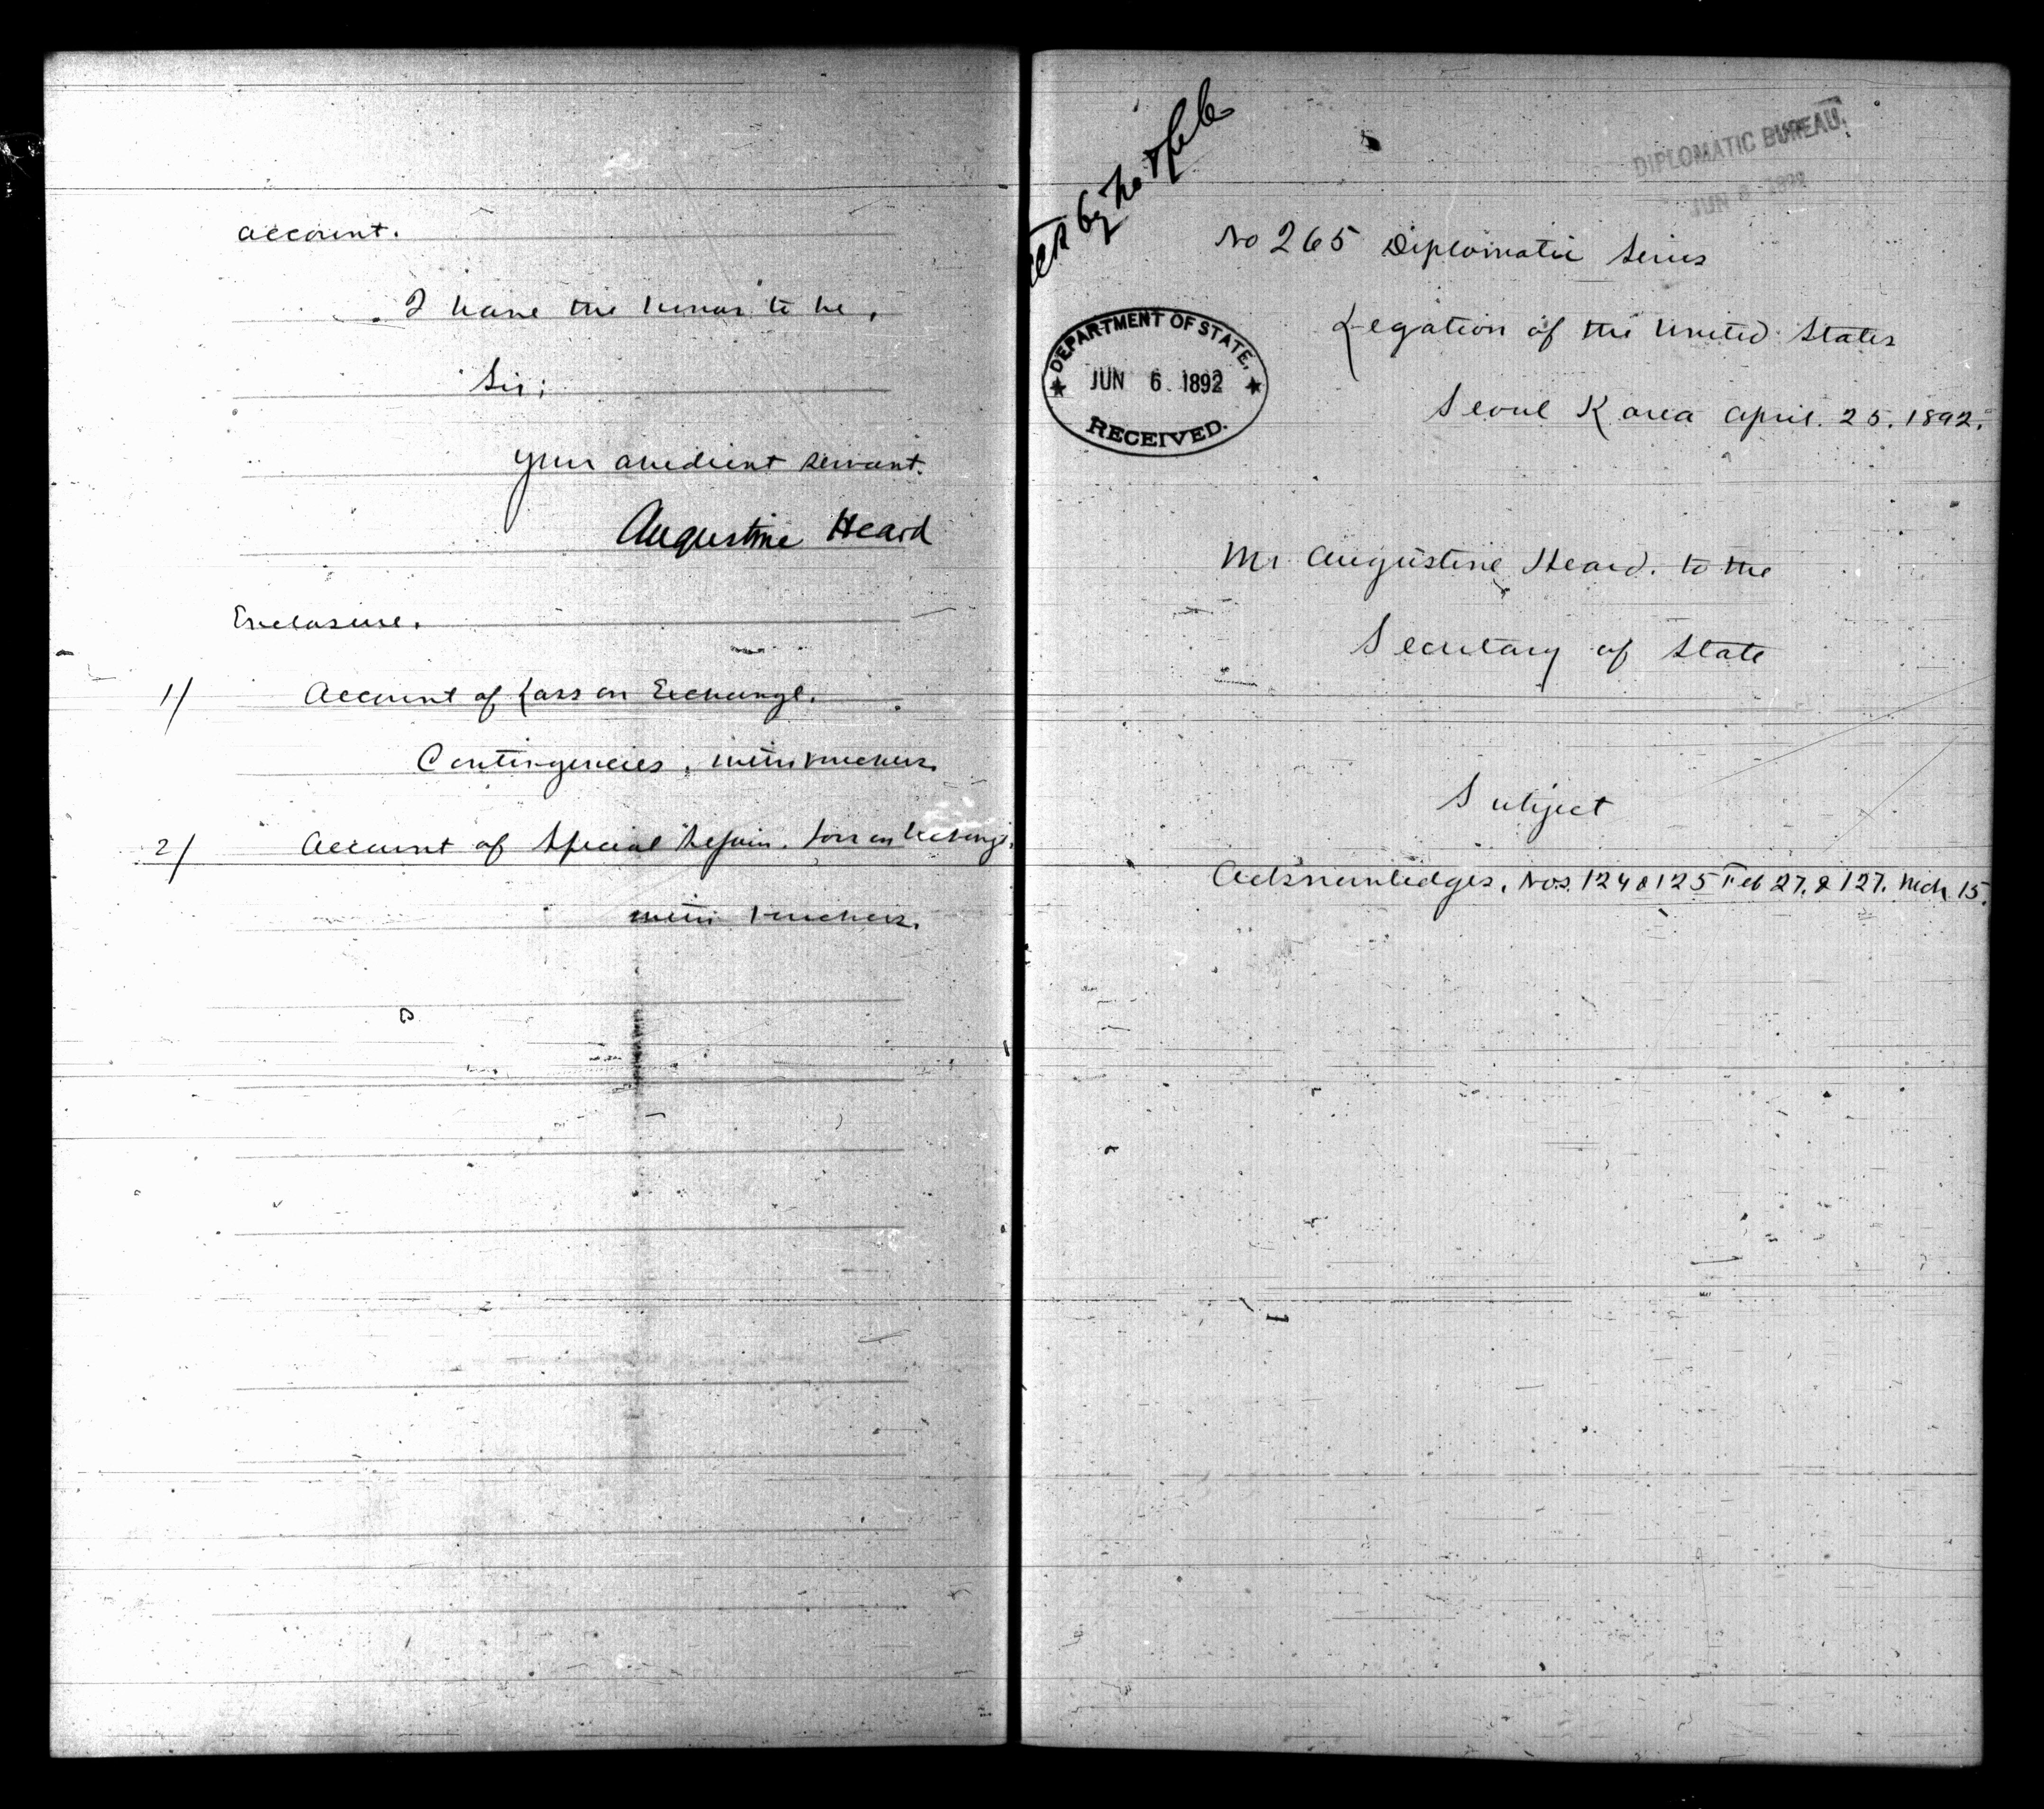 account.
I have the honor to be,
Sir;
your obedient servant.
Augustine Heard
Enclosure.
1/ Account of Loss on Exchange.
Contingencies, with vouchers.
2/ Account of Special Repairs. Loss on Exchange.
with vouchers.
DIPLOMATIC BUREAU,
JUN 6 1892
No 265 Diplomatic Series
DEPARTMENT OF STATE,
JUN 6 1892
RECEIVED.
Legation of the United States
Seoul Korea April. 25. 1892.
Mr Augustine Heard. to the
Secretary of State
Subject
Acknowledges, Nos. 124 & 125 Feb 27, & 127. Mch 15.